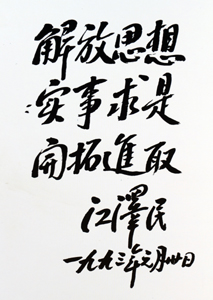 解放思想
实事求是
开拓進取
江澤民
一九九三年元月廿日